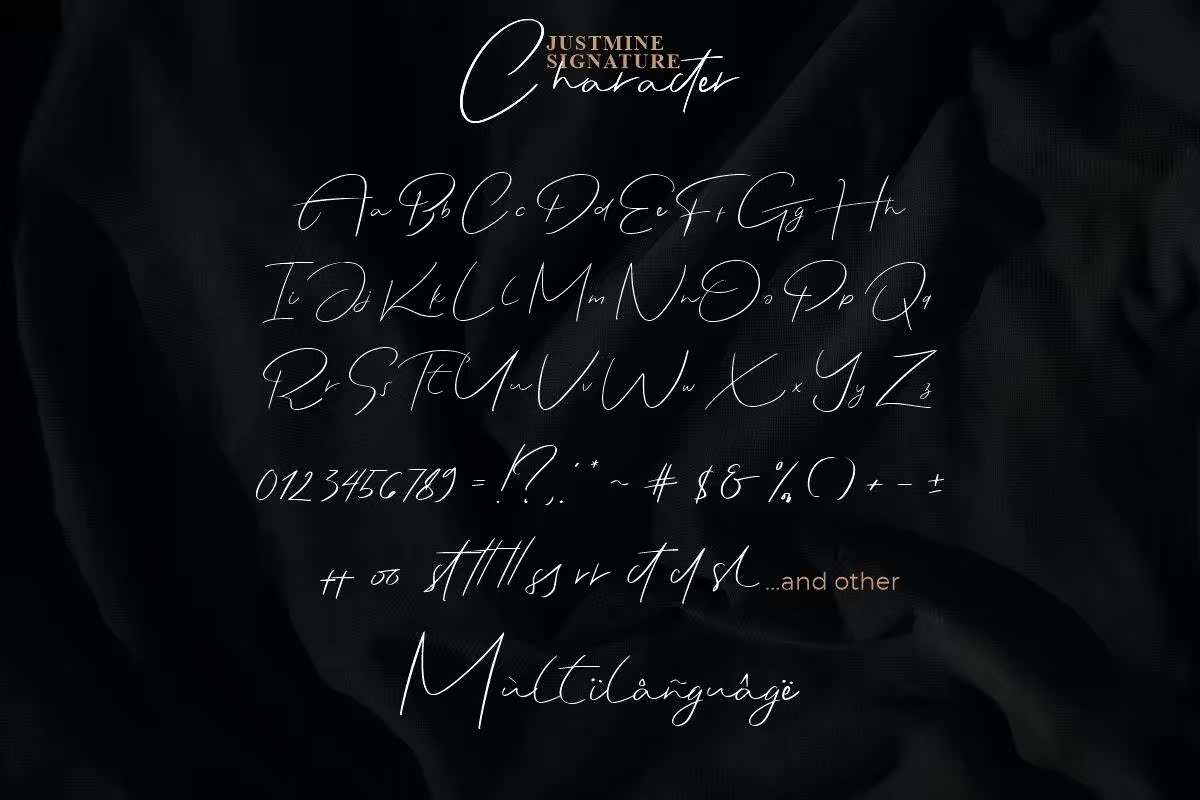 JUSTMINE
SIGNATURE
Character
Aa Bb Cc Dd Ee Ff Gg Hh
Ii Jj Kk Ll Mm Nn Oo Pp Qq
Rr Ss Tt Uu Vv Ww Xx Yy Zz
0123456789 = !?,:'* ~ # $ & % () + - ±
oo st tt ss rr ct cl sl ...and other
Mùltïlåñguâgë